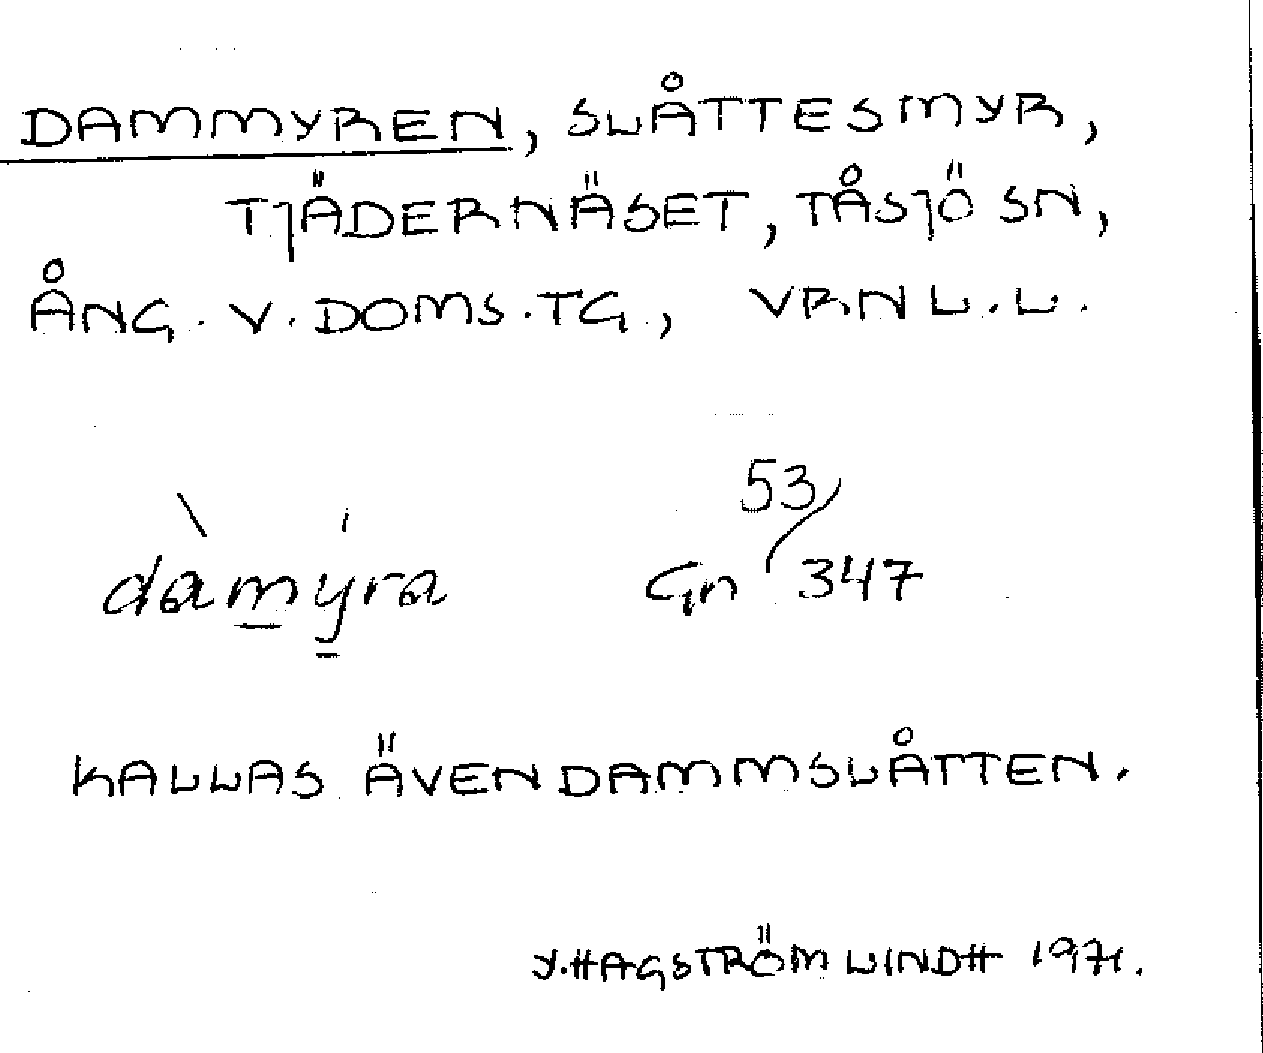 DAMMYREN, SLÅTTESMYR,
TJÄDERNÄSET, TÅSJÖ SN,
ÅNG. V. DOMS.TG., VRNL.L.
dàmýra Gn 53/347
KALLAS ÄVEN DAMMSLÅTTEN.
Y. HAGSTRÖM LINDH 1971.